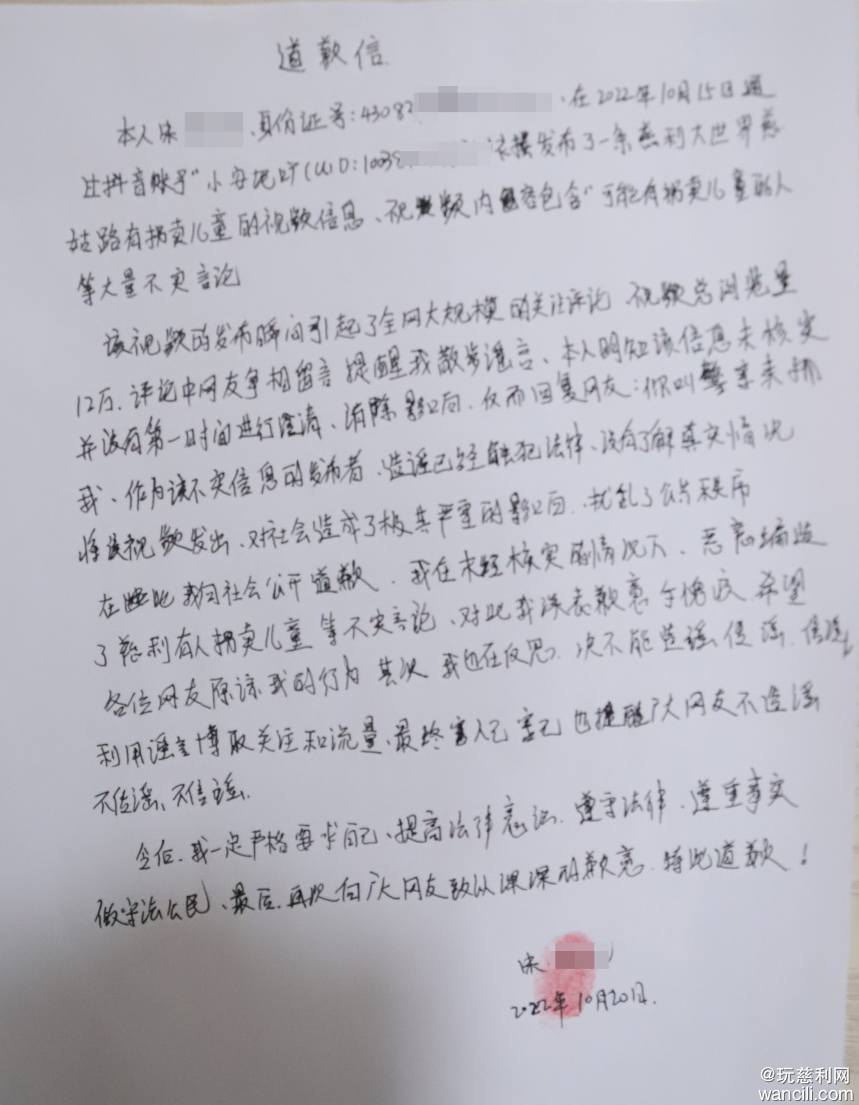 道歉信
本人宋 身份证号:43082 、在2022年10月15日通
过抖音账号"小安 (UID:1003 发布了一条慈利大世界慈
姑路有拐卖儿童的视频信息、视频内容包含"可能有拐卖儿童的人
等大量不实言论
该视频的发布瞬间引起了全网大规模的关注评论 视频总浏览量
12万、评论中网友争相留言提醒我散步谣言、本人明知该信息未核实
并没有第一时间进行澄清、消除影响、反而回复网友:你叫警察来抓
我、作为该不实信息的发布者、造谣已经触犯法律、没有了解真实情况
将该视频发出、对社会造成了极其严重的影响、扰乱了公共秩序
在此我向社会公开道歉、我在未经核实的情况下、恶意编造
了慈利有人拐卖儿童等不实言论、对此我深表歉意 愧疚 希望
各位网友原谅我的行为 其次 我也在反思、决不能造谣传谣、信谣
利用谣言博取关注和流量、最终害人己害己 也提醒广大网友不造谣
不传谣、不信谣.
今后、我一定严格要求自己、提高法律意识、遵守法律、遵重事实
做守法公民、最后、再次向广大网友致以深深的歉意、特此道歉!
宋
2022年10月20日.
@玩慈利网
wancili.com